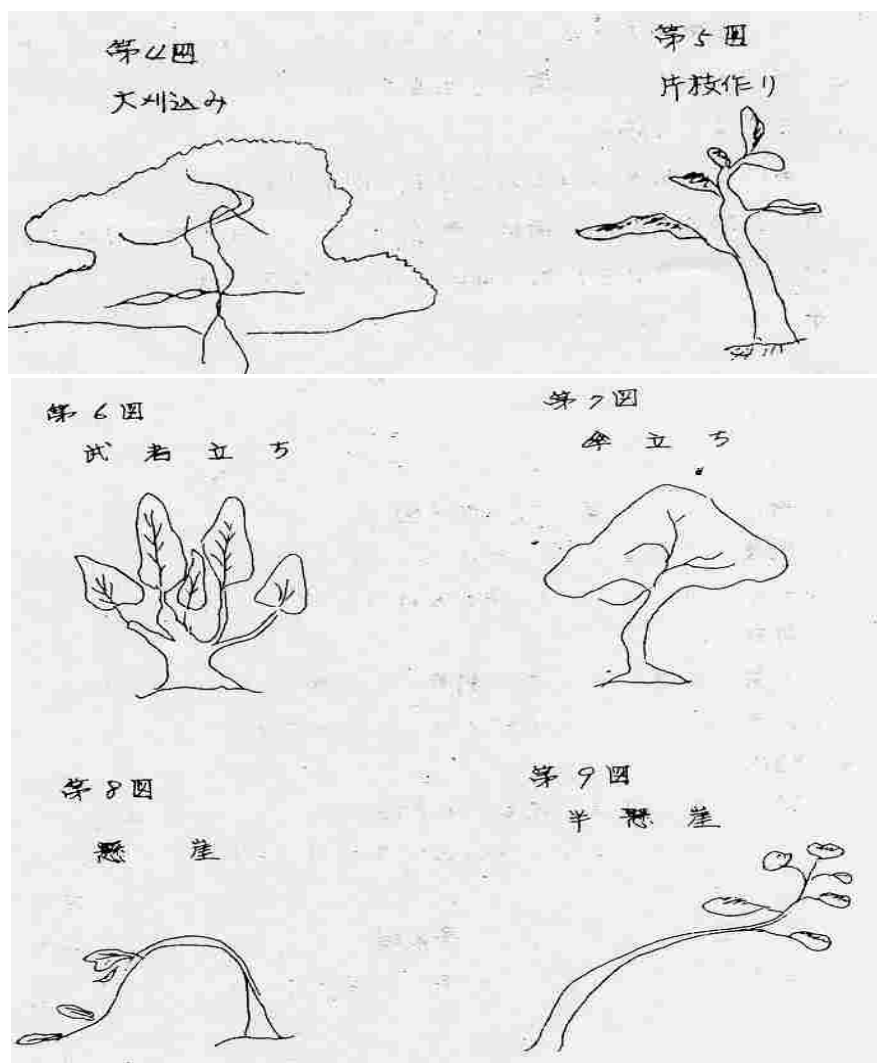 第4図
大刈込み
第5図
片枝作り
第6図
武者立ち
第7図
傘立ち
第8図
懸崖
第9図
半懸崖